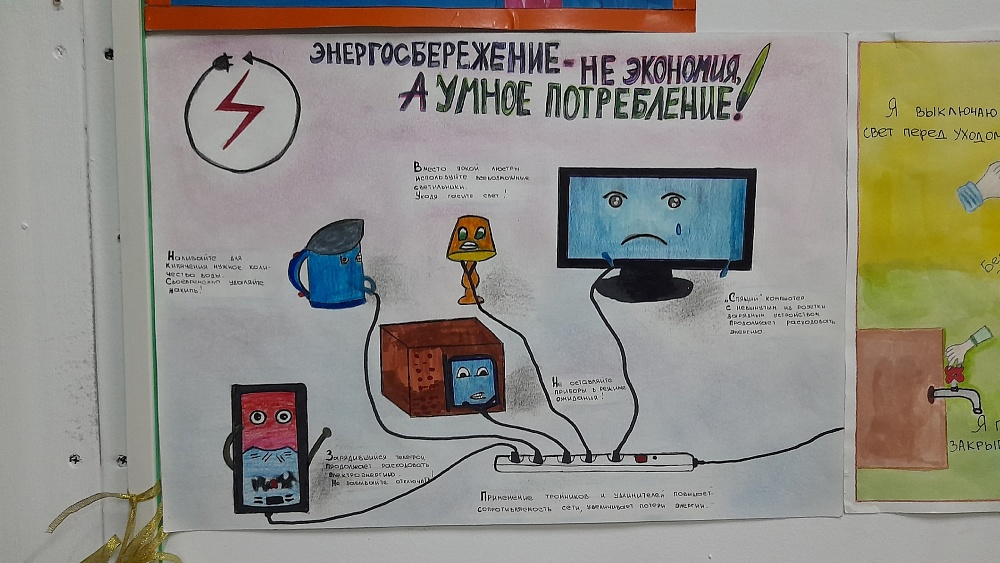 ЭНЕРГОСБЕРЕЖЕНИЕ - НЕ ЭКОНОМИЯ,
А УМНОЕ ПОТРЕБЛЕНИЕ!
Вместо яркой люстры
используйте всевозможные
светильники.
Уходя гасите свет!
Наливайте для
кипячения нужное коли-
чество воды.
Своевременно удаляйте
накипь!
„Спящий" компьютер
с невынутым из розетки
зарядным устройством
продолжает расходовать
энергию.
Не оставляйте
приборы в режиме
ожидания!
Зарядившийся телефон
продолжает расходовать
электроэнергию.
Не забывайте отключать!
Применение тройников и удлинителей повышает
сопротивляемость сети, увеличивает потери энергии.
Я ВЫКЛЮЧАЮ
СВЕТ ПЕРЕД УХОДОМ
Я
ЗАКРЫ